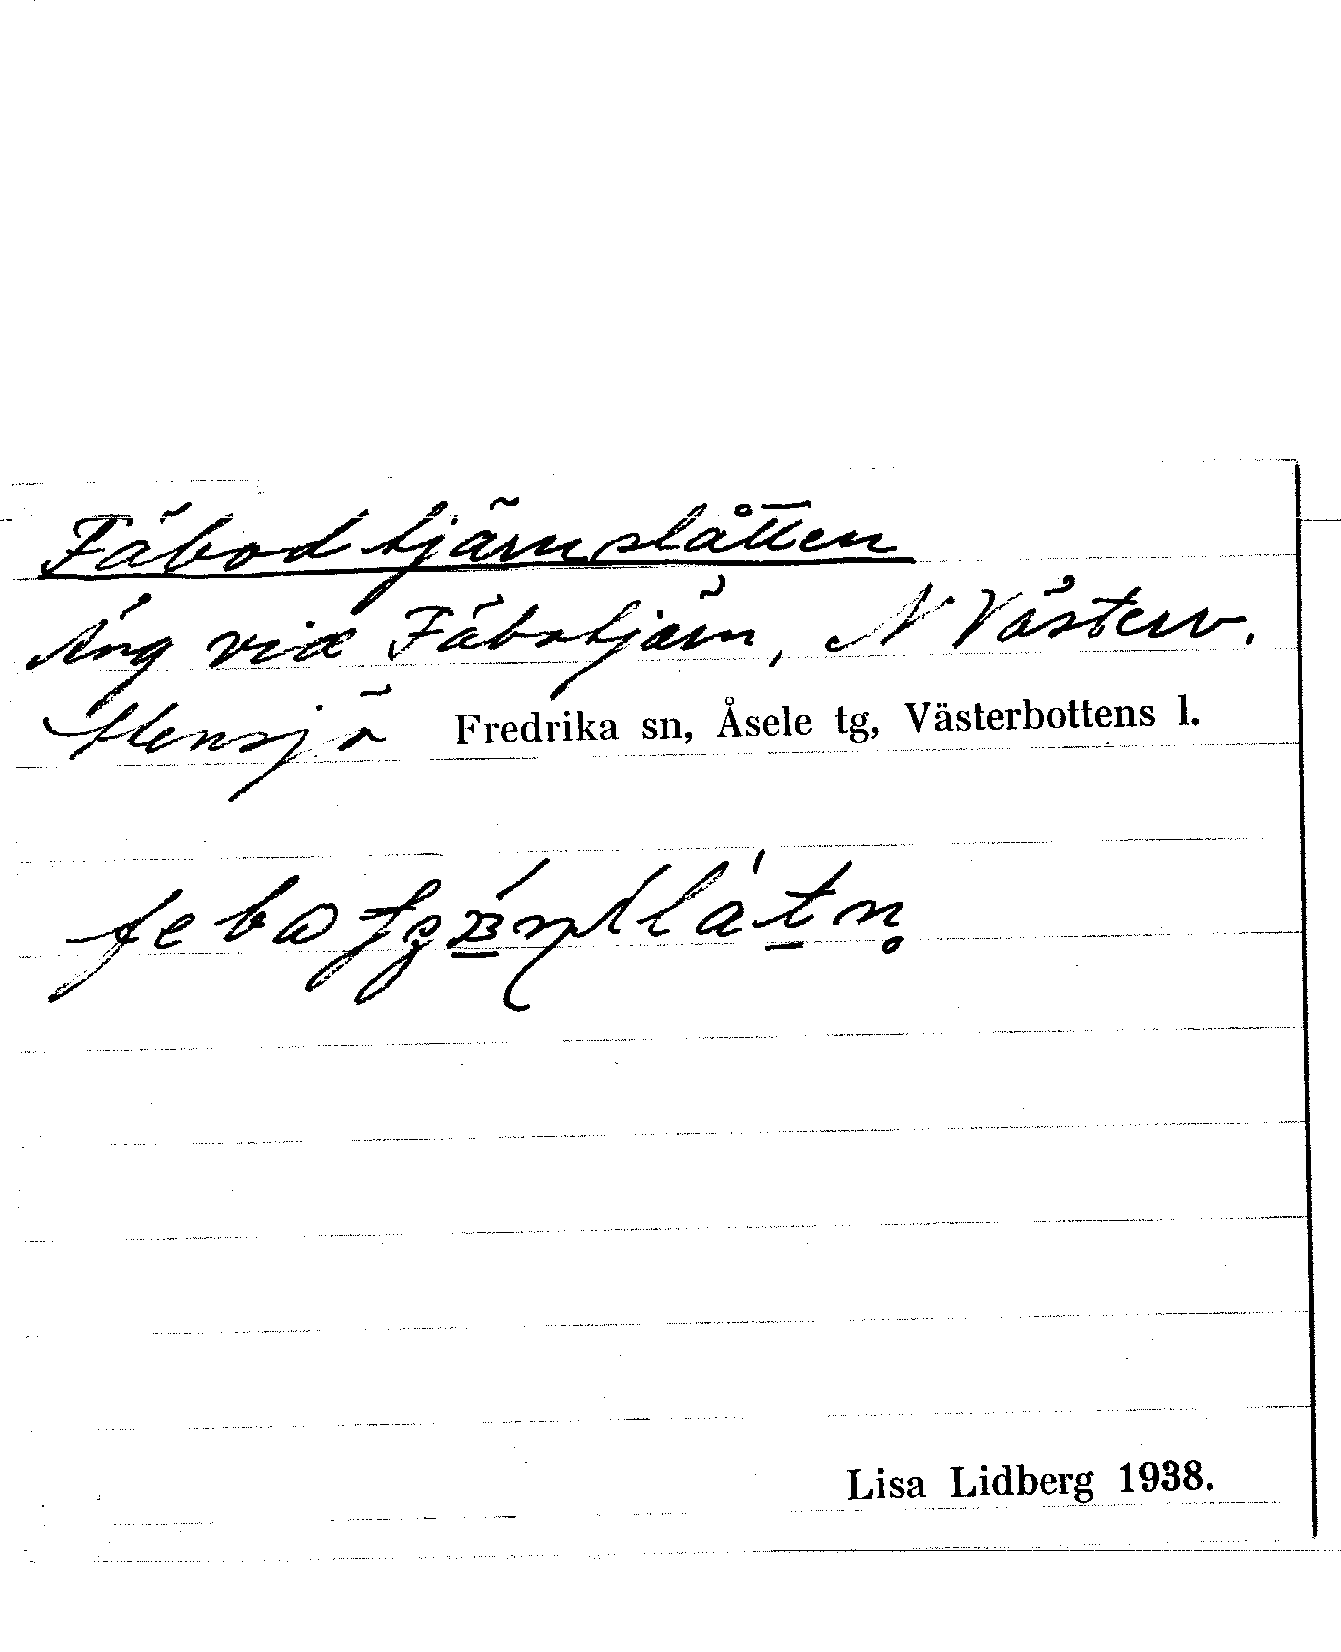 Fäbodtjärnslåtten
Äng vid Fäbotjärn, N Västerv.
Stensjö Fredrika sn, Åsele tg, Västerbottens l.
Lisa Lidberg 1938.